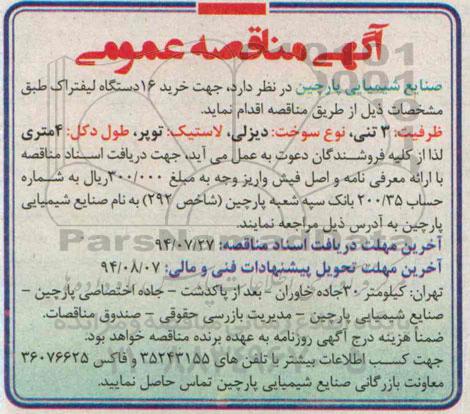 آگهی مناقصه عمومی
صنایع شیمیایی پارچین در نظر دارد، جهت خرید ۱۶دستگاه لیفتراک طبق
مشخصات ذیل از طریق مناقصه اقدام نماید.
ظرفیت: ۳ تنی، نوع سوخت: دیزلی، لاستیک: توپر، طول دکل: ۴متری
لذا از کلیه فروشندگان دعوت به عمل می آید، جهت دریافت اسناد مناقصه
با ارائه معرفی نامه و اصل فیش واریز وجه به مبلغ ۳۰۰/۰۰۰ریال به شماره
حساب ۲۰۰/۳۵ بانک سپه شعبه پارچین (شاخص ۲۹۲) به نام صنایع شیمیایی
پارچین به آدرس ذیل مراجعه نمایند.
آخرین مهلت دریافت اسناد مناقصه: ۹۴/۰۷/۲۷
آخرین مهلت تحویل پیشنهادات فنی و مالی: ۹۴/۰۸/۰۷
تهران: کیلومتر ۳۰جاده خاوران - بعد از پاکدشت - جاده اختصاصی پارچین -
صنایع شیمیایی پارچین - مدیریت بازرسی حقوقی - صندوق مناقصات.
ضمناً هزینه درج آگهی روزنامه به عهده برنده مناقصه خواهد بود.
جهت کسب اطلاعات بیشتر با تلفن های ۳۵۲۴۳۱۵۵ و فاکس ۳۶۰۷۶۶۲۵
معاونت بازرگانی صنایع شیمیایی پارچین تماس حاصل نمایید.
ParsNamadData